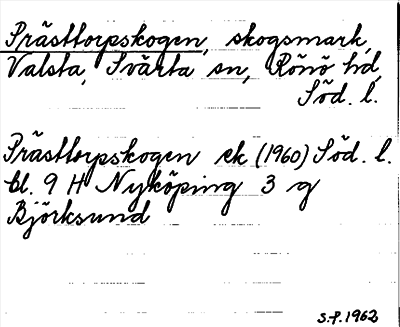 Prästtorpskogen, skogsmark,
Valsta, Svärta sn, Rönö hd,
Söd. l.
Prästtorpskogen ek (1960) Söd. l.
bl. 9 H Nyköping 3 g
Björksund
S.P. 1962